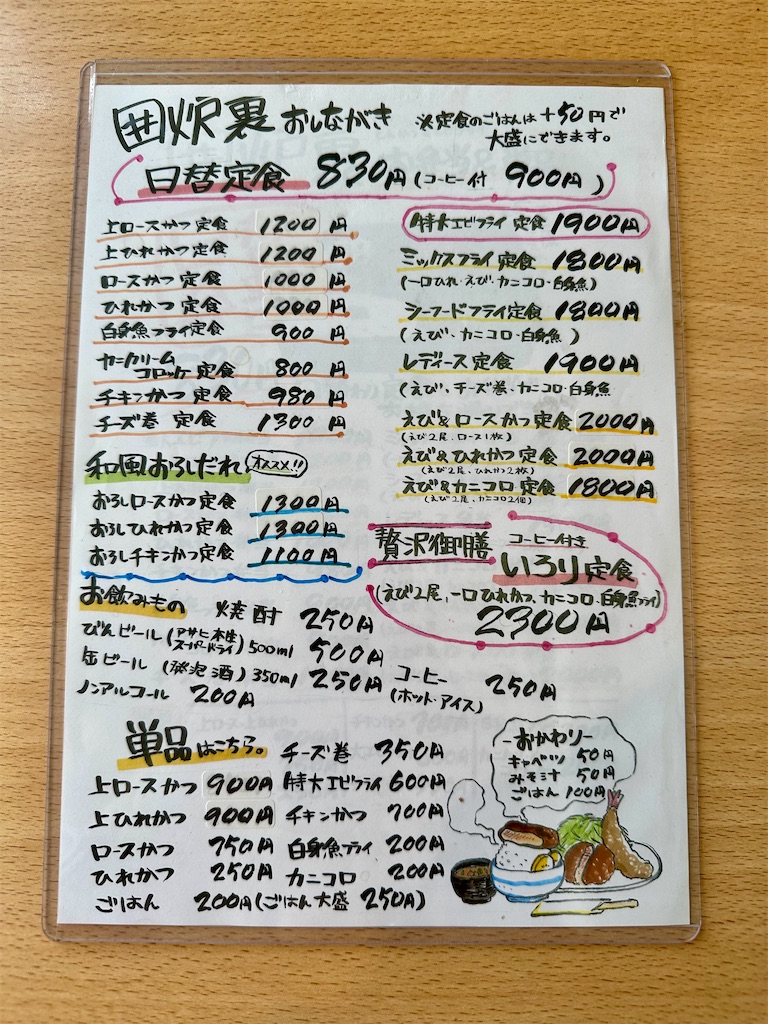 囲炉裏 おしながき ※定食のごはんは+50円で
大盛にできます。
日替定食 830円(コーヒー付 900円)
上ロースかつ定食 1200円
上ひれかつ定食 1200円
ロースかつ定食 1000円
ひれかつ定食 1000円
白身魚フライ定食 900円
カニクリーム
コロッケ定食 800円
チキンかつ定食 980円
チーズ巻定食 1300円
特大エビフライ定食 1900円
ミックスフライ定食 1800円
(一口ひれ・えび・カニコロ・白身魚)
シーフードフライ定食 1800円
(えび、カニコロ・白身魚)
レディース定食 1900円
(えび、チーズ巻、カニコロ・白身魚
えび&ロースかつ定食 2000円
(えび2尾、ロース1枚)
えび&ひれかつ定食 2000円
(えび2尾、ひれかつ2枚)
えび&カニコロ定食 1800円
(えび2尾、カニコロ2個)
和風おろしだれ オススメ!!
おろしロースかつ定食 1300円
おろしひれかつ定食 1300円
おろしチキンかつ定食 1100円
贅沢御膳 コーヒー付き
いろり定食
(えび2尾、一口ひれかつ、カニコロ・白身魚フライ)
2300円
お飲みもの 焼酎 250円
びんビール(アサヒ本生
スーパードライ) 500ml 500円
缶ビール(発泡酒)350ml 250円
ノンアルコール 200円
コーヒー
(ホット・アイス) 250円
単品はこちら。
チーズ巻 350円
上ロースかつ 900円
特大エビフライ 600円
上ひれかつ 900円
チキンかつ 700円
ロースかつ 750円
白身魚フライ 200円
ひれかつ 250円
カニコロ 200円
ごはん 200円(ごはん大盛 250円)
-おかわり-
キャベツ 50円
みそ汁 50円
ごはん 100円